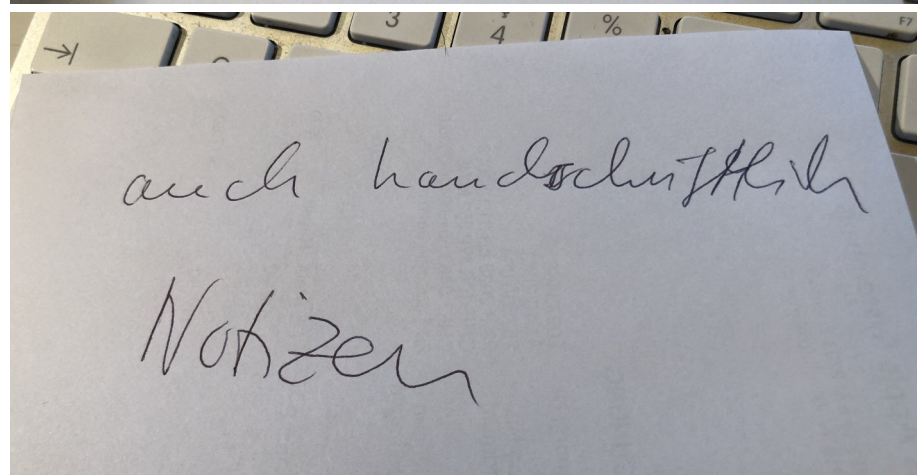 3 4 % F7
auch handschriftlich
Notizen